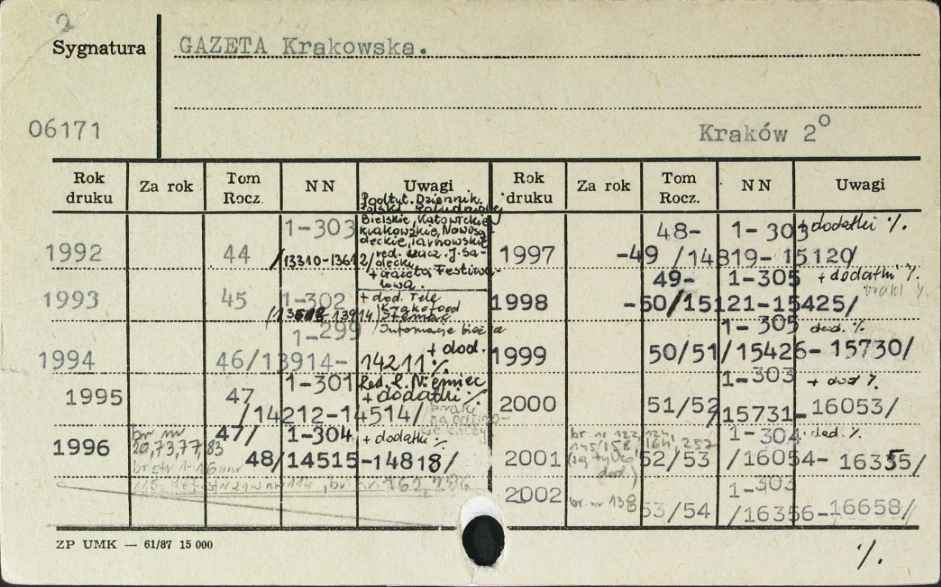 2
Sygnatura
GAZETA Krakowska.
06171
Kraków 2°
Rok druku Za rok Tom Rocz. NN Uwagi Rok druku Za rok Tom Rocz. NN Uwagi
Podtyt. Dziennik
Bielskie, Katowickie,
Krakowskie, Nowosą-
deckie, Tarnowskie
1992 44 1-303
/13310-13612/
red. nacz. J. Sa-
decki
+ gazeta Festiwa-
lowa.
1993 45 1-302
+ dod. Tele
1994 46/13914- 1-299
14211 ⁒
+ dod.
1995 47 1-301
/14212-14514/
Red. R. Niemiec
+ dodatki ⁒
1996 br nr
20,73,77,83
47/ 1-304
48/14515-14818/
+ dodatki ⁒
1997 48- 1-303
-49 /14819- 15120/
+ dodatki ⁒
1998 49- 1-305
-50/15121-15425/
+ dodatki ⁒
1999 1-305
50/51/15426- 15730/
dod. ⁒
2000 51/52 1-303
/15731-16053/
+ dod ⁒
2001 52/53 1-304
/16054- 16355/
dod. ⁒
2002 br. nr 138 53/54 1-303
/16356-16658/
ZP UMK — 61/87 15 000
⁒